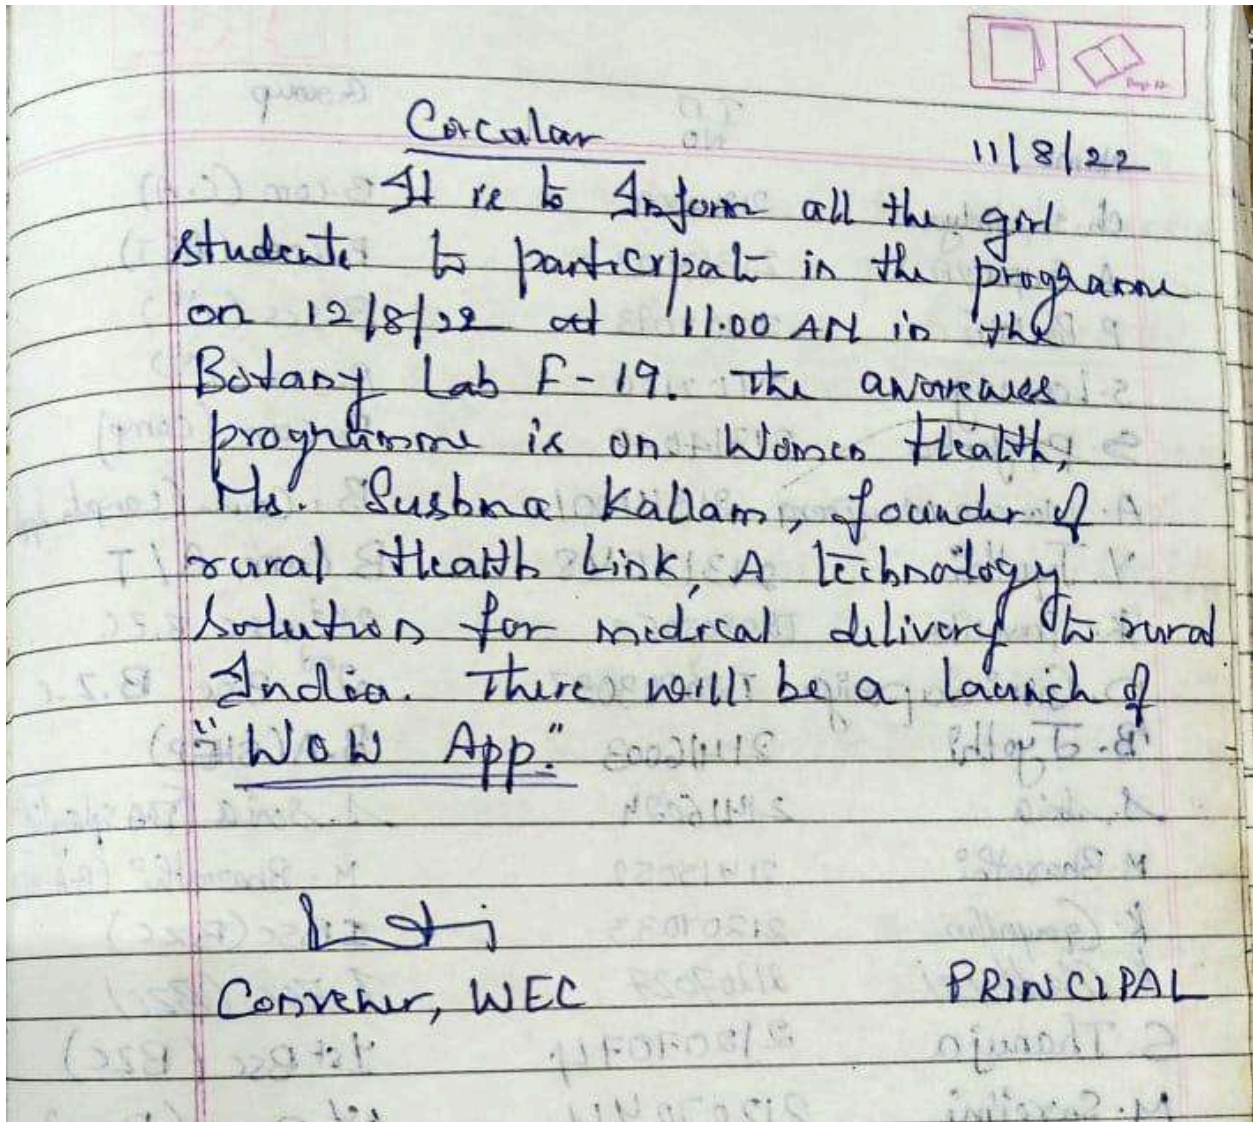 Circular
11/8/22
It is to Inform all the girl
students to participate in the programme
on 12/8/22 at 11.00 AM in the
Botany Lab F-19. The awareness
programme is on Women Health,
Ms. Sushma Kallam, founder of
rural Health Link, A technology
solution for medical delivery to rural
India. There will be a launch of
"WOW App."
Convener, WEC
PRINCIPAL